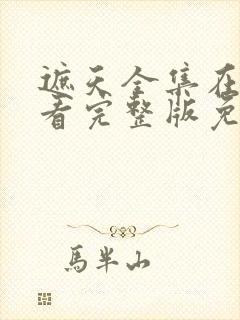 遮天全集在
看完整版免
馬半山